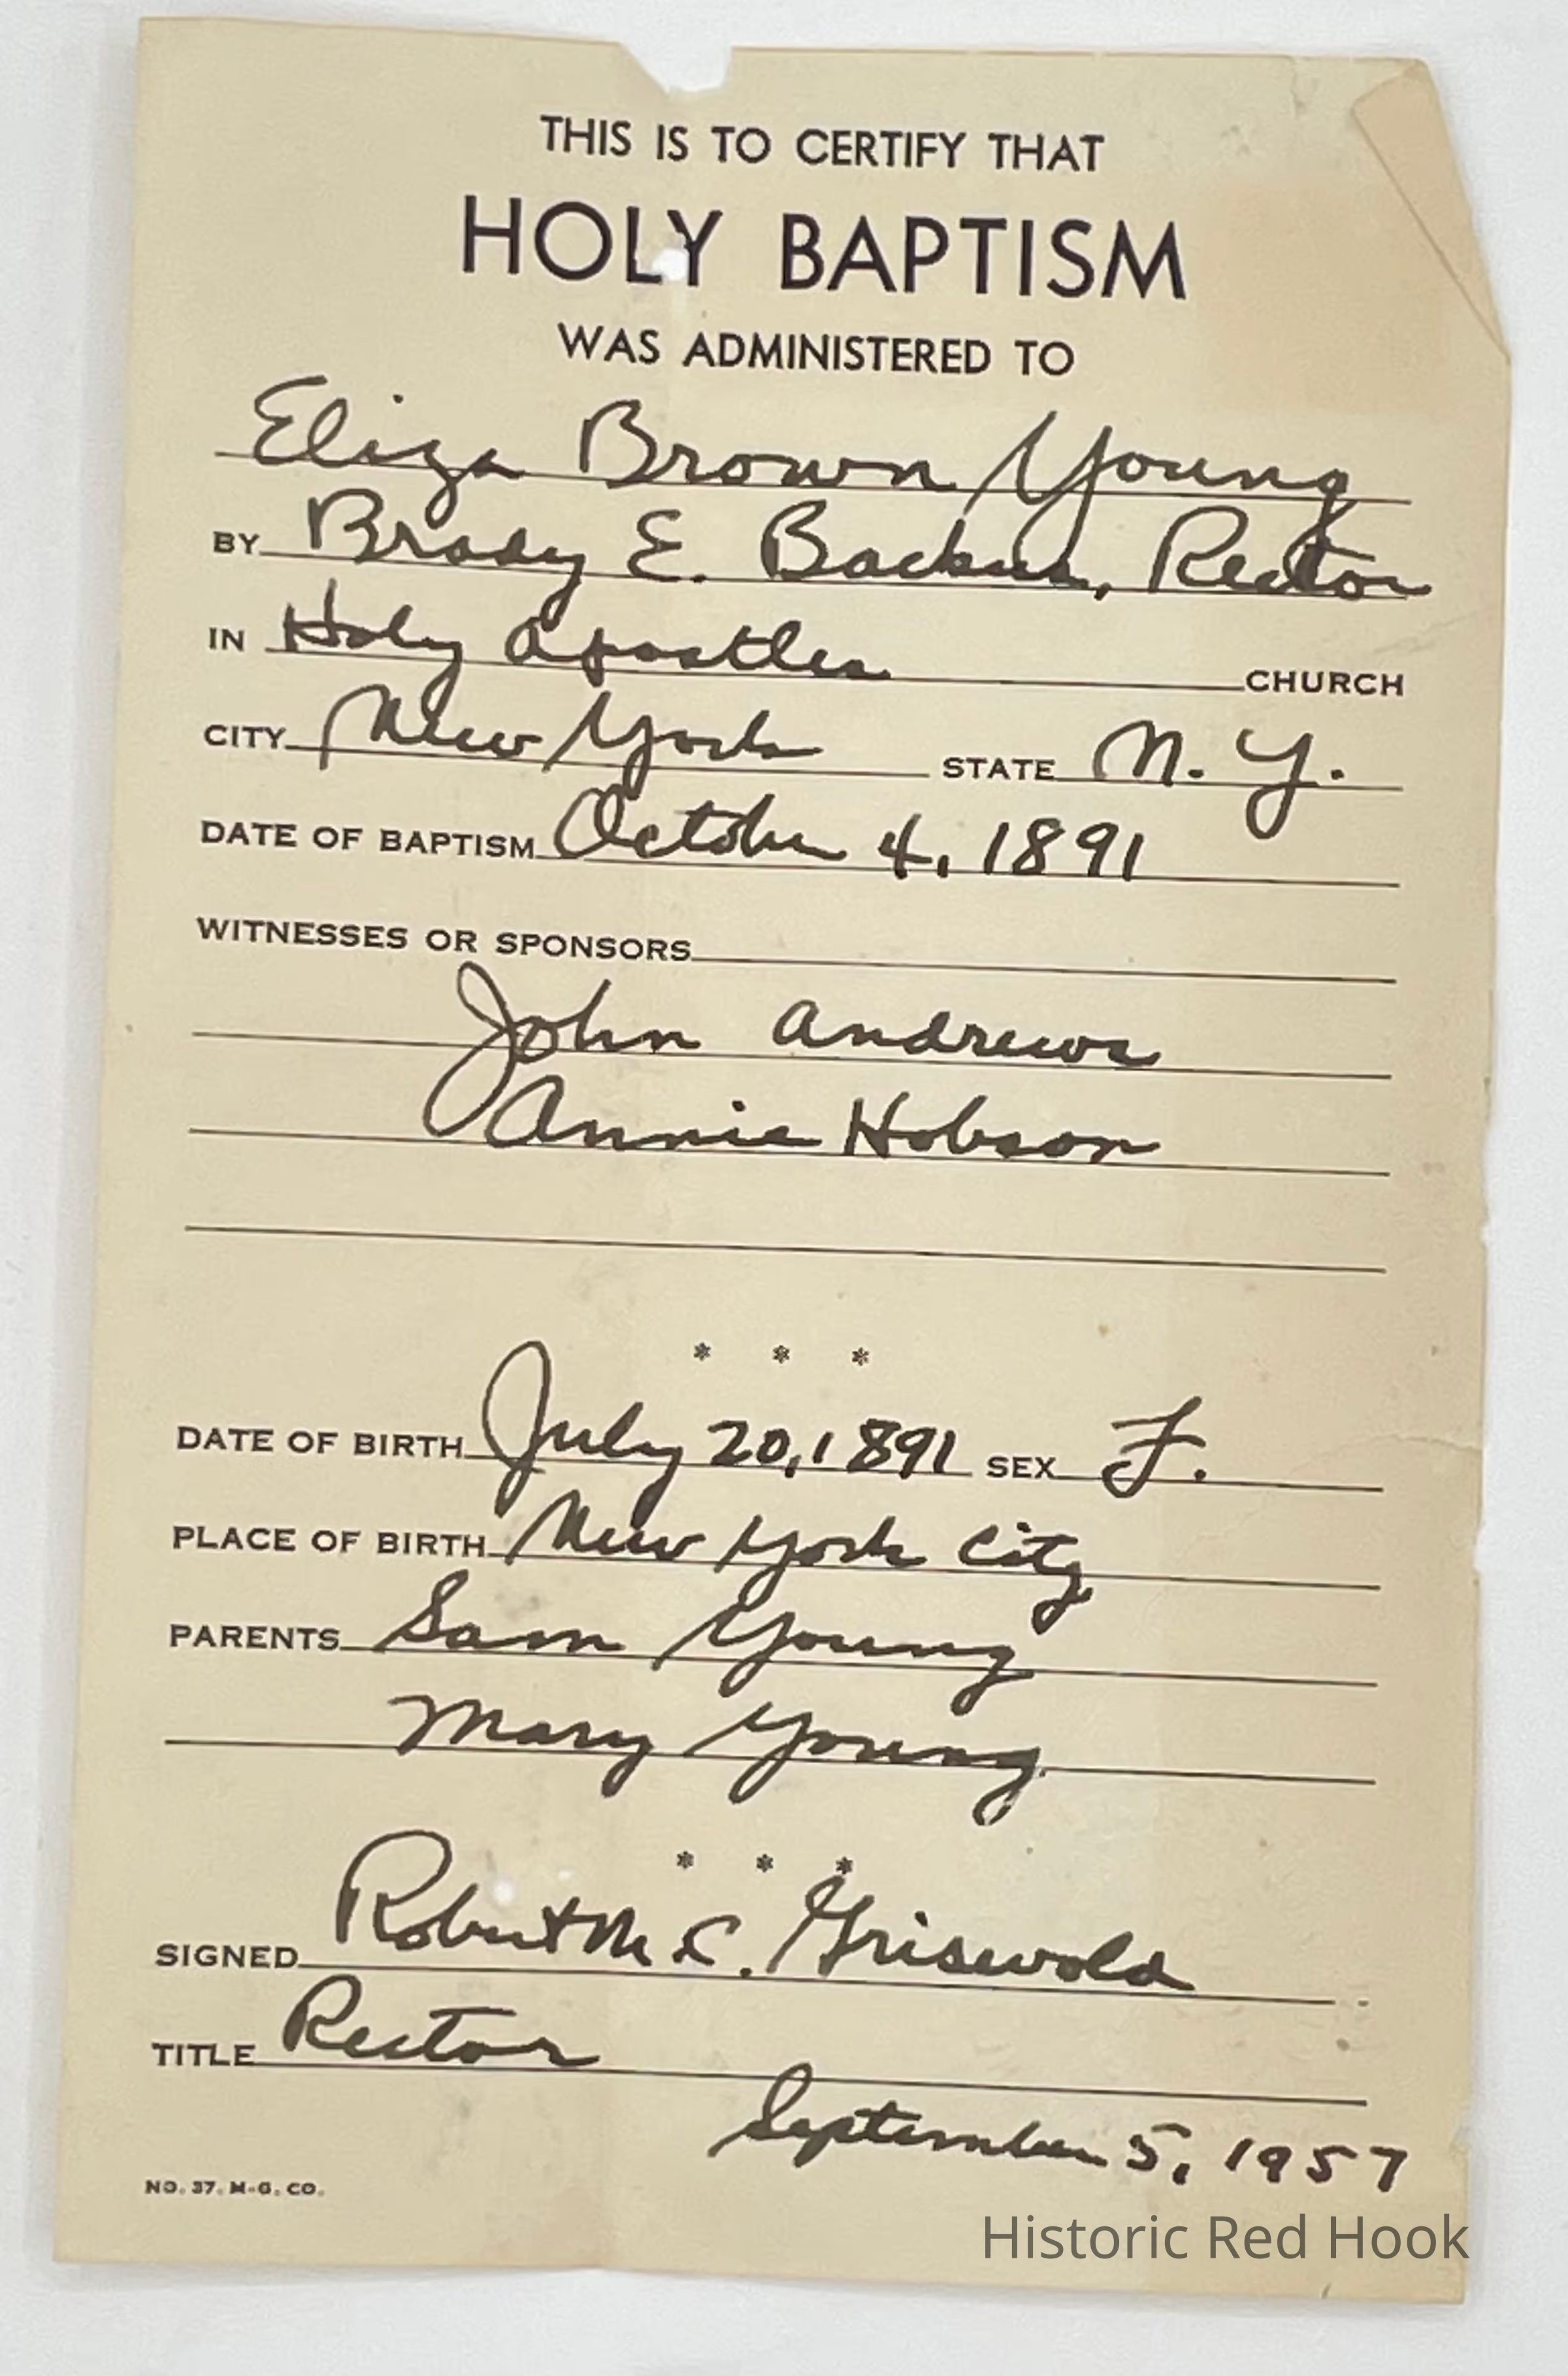 THIS IS TO CERTIFY THAT
HOLY BAPTISM
WAS ADMINISTERED TO
Eliza Brown Young
BY Brady E. Backus, Rector
IN Holy Apostles CHURCH
CITY New York STATE N. Y.
DATE OF BAPTISM October 4, 1891
WITNESSES OR SPONSORS
John Andrews
Annie Hobson
* * *
DATE OF BIRTH July 20, 1891 SEX F.
PLACE OF BIRTH New York City
PARENTS Sam Young
Mary Young
* * *
SIGNED Robert M C. Griswold
TITLE Rector
September 5, 1957
NO. 37. M-G. CO.
Historic Red Hook